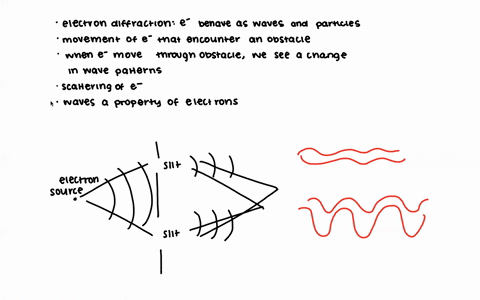 · electron diffraction: e⁻ behave as waves and particles
· movement of e⁻ that encounter an obstacle
· when e⁻ move through obstacle, we see a change
in wave patterns
· scattering of e⁻
· waves a property of electrons
slit
electron
source
slit